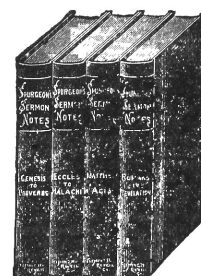 SPURGEON'S
SERMON
NOTES
GENESIS
TO
PROVERBS
SPURGEON'S
SERMON
NOTES
ECCLES
TO
MALACHI
SERMON
NOTES
MATTHEW
TO
ACTS
SERMON
NOTES
ROMANS
TO
REVELATION